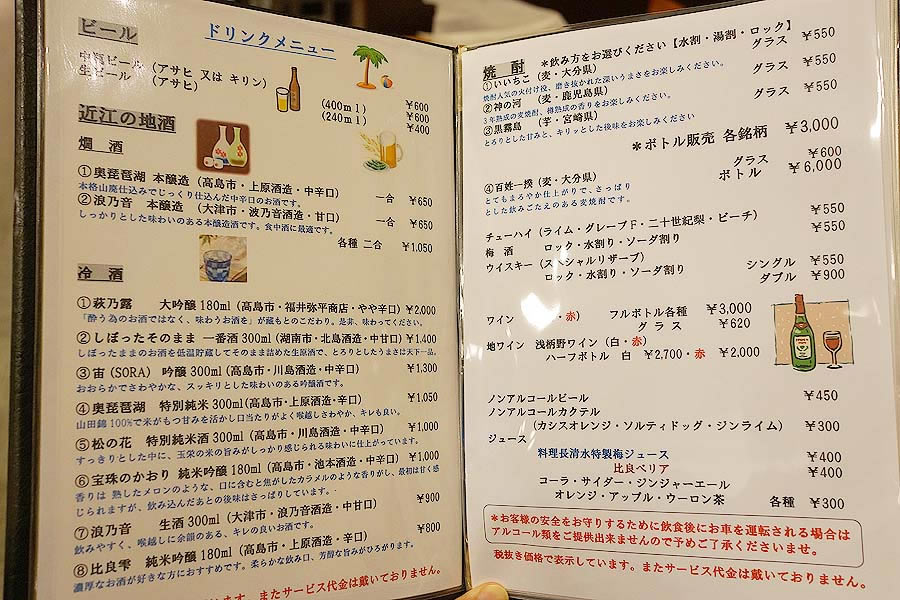 ドリンクメニュー
ビール
中瓶ビール (アサヒ 又は キリン) ¥600
生ビール (アサヒ) (400ml) ¥600
(240ml) ¥400
近江の地酒
燗 酒
①奥琵琶湖 本醸造 (高島市・上原酒造・中辛口) 一合 ¥650
本格山廃仕込みでじっくり仕込んだ中辛口のお酒です。
②浪乃音 本醸造 (大津市・波乃音酒造・甘口) 一合 ¥650
しっかりとした味わいのある本醸造酒です。食中酒に最適です。
各種 二合 ¥1,050
冷 酒
①萩乃露 大吟醸 180ml (高島市・福井弥平商店・やや辛口) ¥2,000
「酔う為のお酒ではなく、味わうお酒を」が蔵もとのこだわり。是非、味わってください。
②しぼったそのまま 一番酒 300ml (湖南市・北島酒造・中甘口) ¥1,400
しぼったままのお酒を低温貯蔵してそのまま詰めた生原酒で、とろりとしたうまさは天下一品。
③宙(SORA) 吟醸 300ml (高島市・川島酒造・中辛口) ¥1,300
おおらかでさわやかな、スッキリとした味わいのある吟醸酒です。
④奥琵琶湖 特別純米 300ml (高島市・上原酒造・辛口) ¥1,050
山田錦100%で米がもつ甘みを活かし口当たりがよく喉越しさわやか、キレも良い。
⑤松の花 特別純米酒 300ml (高島市・川島酒造・中辛口) ¥1,000
すっきりとした中に、玉栄の米の旨みがしっかり感じられる味わいに仕上がっています。
⑥宝珠のかおり 純米吟醸 180ml (高島市・池本酒造・中辛口) ¥1,000
香りは 熟したメロンのような、口に含むと焦がしたカラメルのような香りがし、最初は甘く感
じられますが、飲み込んだあとの後味はさっぱりしています。
⑦浪乃音 生酒 300ml (大津市・浪乃音酒造・中甘口) ¥900
飲みやすく、喉越しに余韻のある、キレの良いお酒です。
⑧比良雫 純米吟醸 180ml (高島市・上原酒造・辛口) ¥800
濃厚なお酒が好きな方におすすめです。柔らかな飲み口、芳醇な旨みがひろがります。
います。またサービス代金は戴いておりません。
焼 酎 *飲み方をお選びください【水割・湯割・ロック】
①いいちこ (麦・大分県) グラス ¥550
焼酎人気の火付け役、磨き抜かれた深いうまさをお楽しみください。
②神の河 (麦・鹿児島県) グラス ¥550
3年熟成の麦焼酎、樽熟成の香りをお楽しみください。
③黒霧島 (芋・宮崎県) グラス ¥550
とろりとした甘みと、キリッとした後味をお楽しみください
*ボトル販売 各銘柄 ¥3,000
④百姓一揆(麦・大分県) グラス ¥600
ボトル ¥6,000
とてもまろやか仕上がりで、さっぱり
とした飲みごたえのある麦焼酎です。
チューハイ (ライム・グレープF・二十世紀梨・ピーチ) ¥550
梅 酒 ロック・水割り・ソーダ割り ¥550
ウイスキー (スペシャルリザーブ) シングル ¥550
ロック・水割り・ソーダ割り ダブル ¥900
ワイン ・赤) フルボトル各種 ¥3,000
グ ラ ス ¥620
地ワイン 浅柄野ワイン (白・赤)
ハーフボトル 白 ¥2,700・赤 ¥2,000
ノンアルコールビール ¥450
ノンアルコールカクテル
(カシスオレンジ・ソルティドッグ・ジンライム) ¥300
ジュース
料理長清水特製梅ジュース ¥400
比良ベリア ¥400
コーラ・サイダー・ジンジャーエール
オレンジ・アップル・ウーロン茶 各種 ¥300
*お客様の安全をお守りするために飲食後にお車を運転される場合は
アルコール類をご提供出来ませんので予めご了承くださいませ。
税抜き価格で表示しています。またサービス代金は戴いておりません。